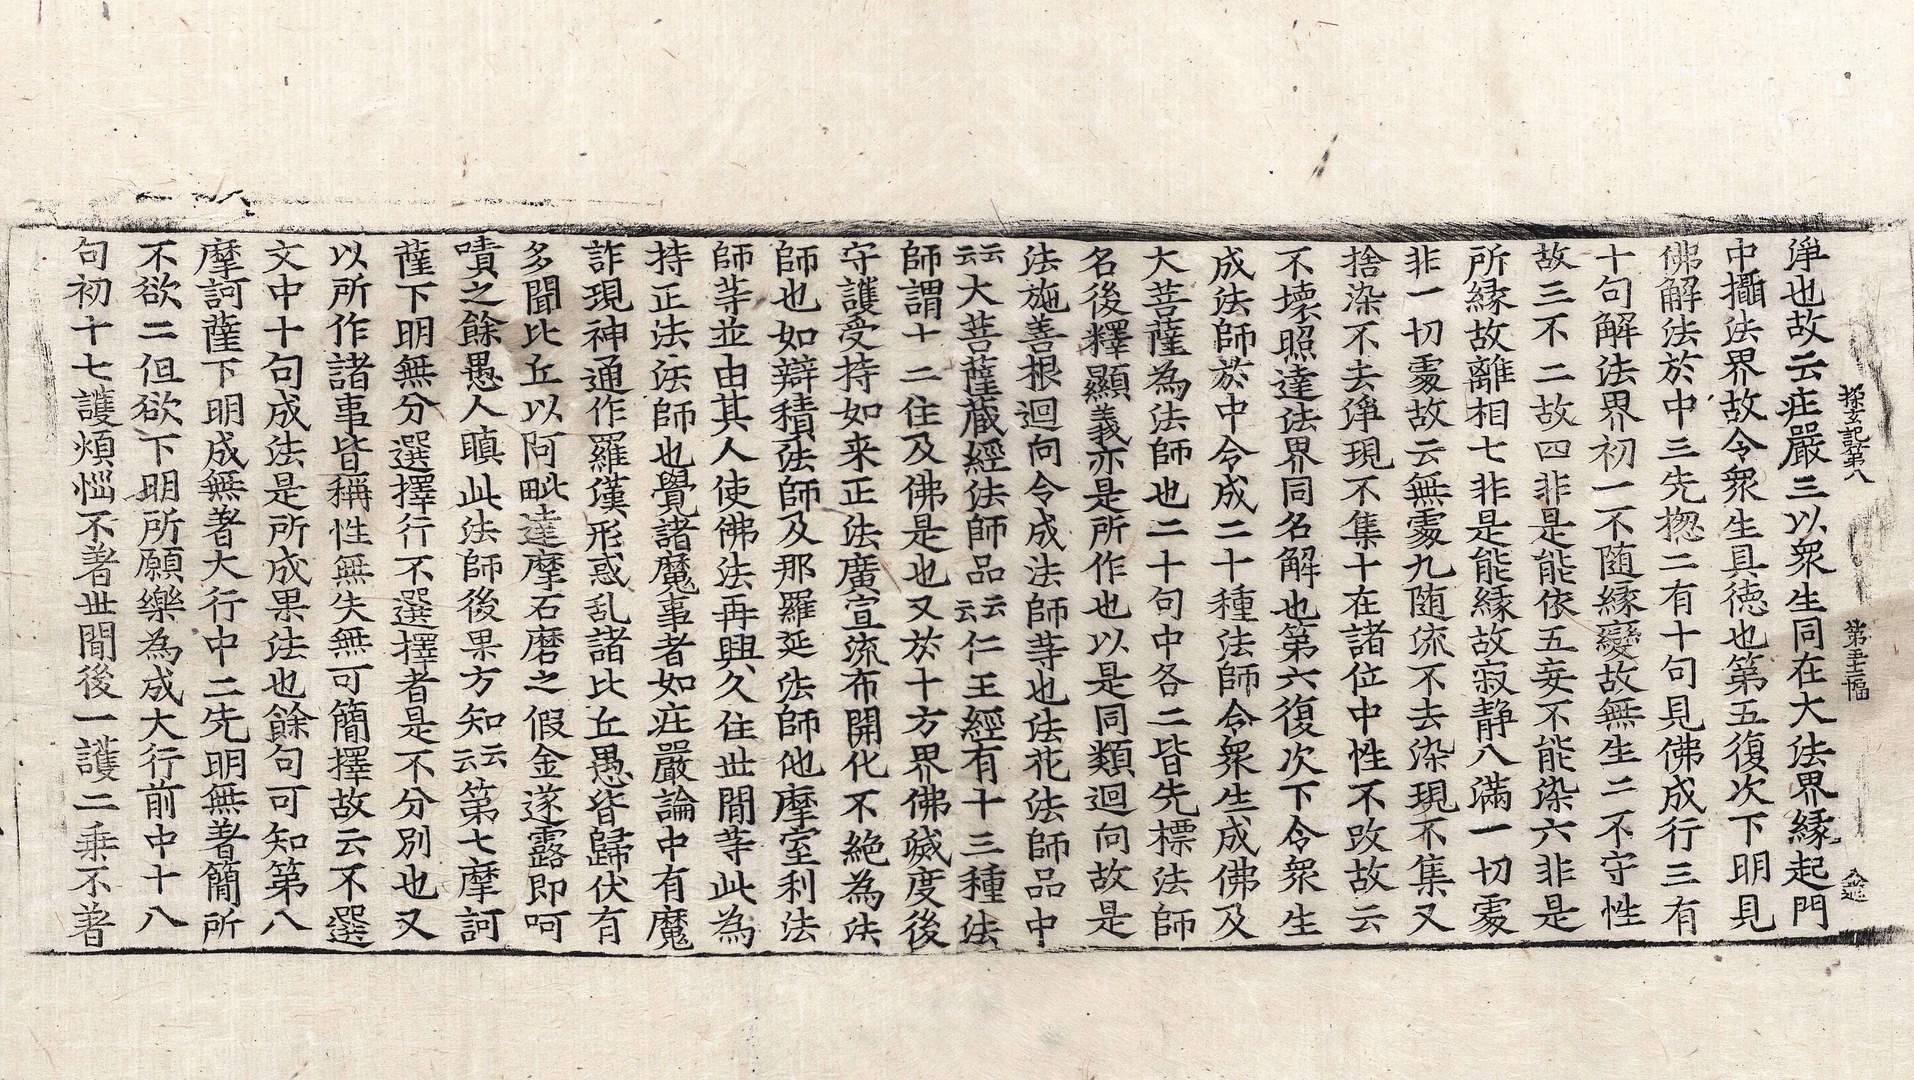 探玄記第八　第五十三幅
淨也故云庄嚴三以衆生同在大法界縁起門
中攝法界故令衆生具徳也第五復次下明見
佛解法於中三先揔二有十句見佛成行三有
十句解法界初一不随縁變故無生二不守性
故三不二故四非是能依五妄不能染六非是
所縁故離相七非是能縁故寂静八滿一切䖏
非一切䖏故云無䖏九随流不去染現不集又
捨染不去淨現不集十在諸位中性不改故云
不壊照達法界同名解也第六復次下令衆生
成法師於中令成二十種法師令衆生成佛及
大菩薩為法師也二十句中各二皆先標法師
名後釋顯義亦是所作也以是同類迴向故是
法施善根迴向令成法師等也法花法師品中
云云大菩薩蔵經法師品云云仁王經有十三種法
師謂十二住及佛是也又於十方界佛滅度後
守護受持如来正法廣宣流布開化不絶為法
師也如辯積法師及那羅延法師他摩室利法
師等並由其人使佛法再興久住世間等此為
持正法法師也覺諸魔事者如庄嚴論中有魔
詐現神通作羅漢形惑乱諸比丘愚皆歸伏有
多聞比丘以阿毗達摩石磨之假金遂露即呵
嘖之餘愚人瞋此法師後果方知云云第七摩訶
薩下明無分選擇行不選擇者是不分別也又
以所作諸事皆稱性無失無可簡擇故云不選
文中十句成法是所成果法也餘句可知第八
摩訶薩下明成無著大行中二先明無著簡所
不欲二但欲下明所願樂為成大行前中十八
句初十七護煩惱不著世間後一護二乗不著